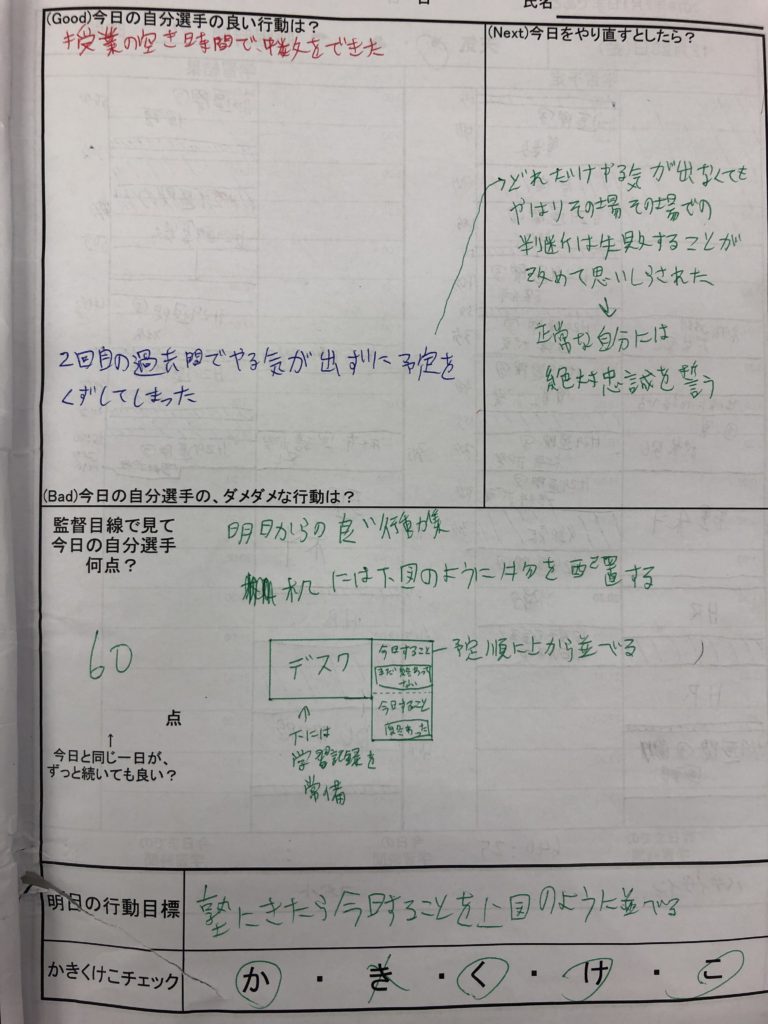 氏名
(Good)今日の自分選手の良い行動は？
授業の空き時間で、中数をできた
2回目の過去問でやる気が出ずに予定を
くずしてしまった
(Bad)今日の自分選手の、ダメダメな行動は？
(Next)今日をやり直すとしたら？
→どれだけやる気が出なくても
やはりその場その場での
判断は失敗することが
改めて思いしらされた
↓
正常な自分には
絶対忠誠を誓う
監督目線で見て
今日の自分選手
何点？
60
点
↑
今日と同じ一日が、
ずっと続いても良い？
明日からの良い行動
机には下図のように物を配置する
デスク
今日すること
まだ
ない
今日すること
予定順に上から並べる
↑
下には
学習記録を
常備
明日の行動目標
塾にきたら今日することを上図のように並べる
かきくけこチェック
か・き・く・け・こ